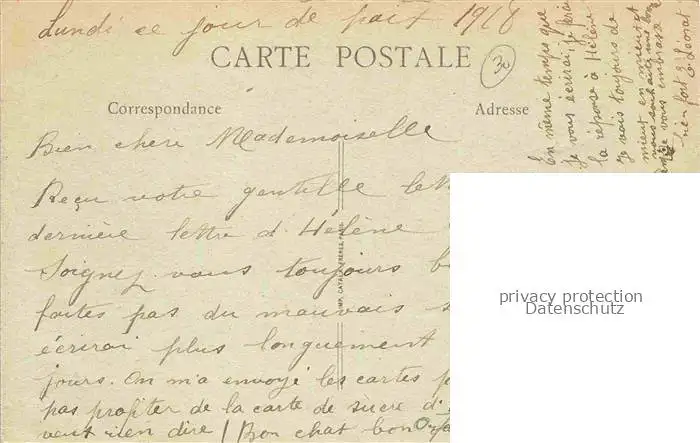 Lundi ce jour de paix 1918
CARTE POSTALE
30
Correspondance
Adresse
Bien chere Mademoiselle
Reçu votre gentille
dernière lettre d'Hélène
Soignez vous toujours
faites pas du mauvais
écrirai plus longuement
jours. On m'a envoyé les cartes
pas profiter de la carte de sucre d'
veut rien dire ! Bon chat bon
IMP. CATALA FRERES, PARIS
En même temps que
je vous écrirai, je ferai
la réponse à Hélène
Je vais toujours de
mieux en mieux et
vous souhaite une bonne
vous embrasse
bien fort
privacy protection
Datenschutz